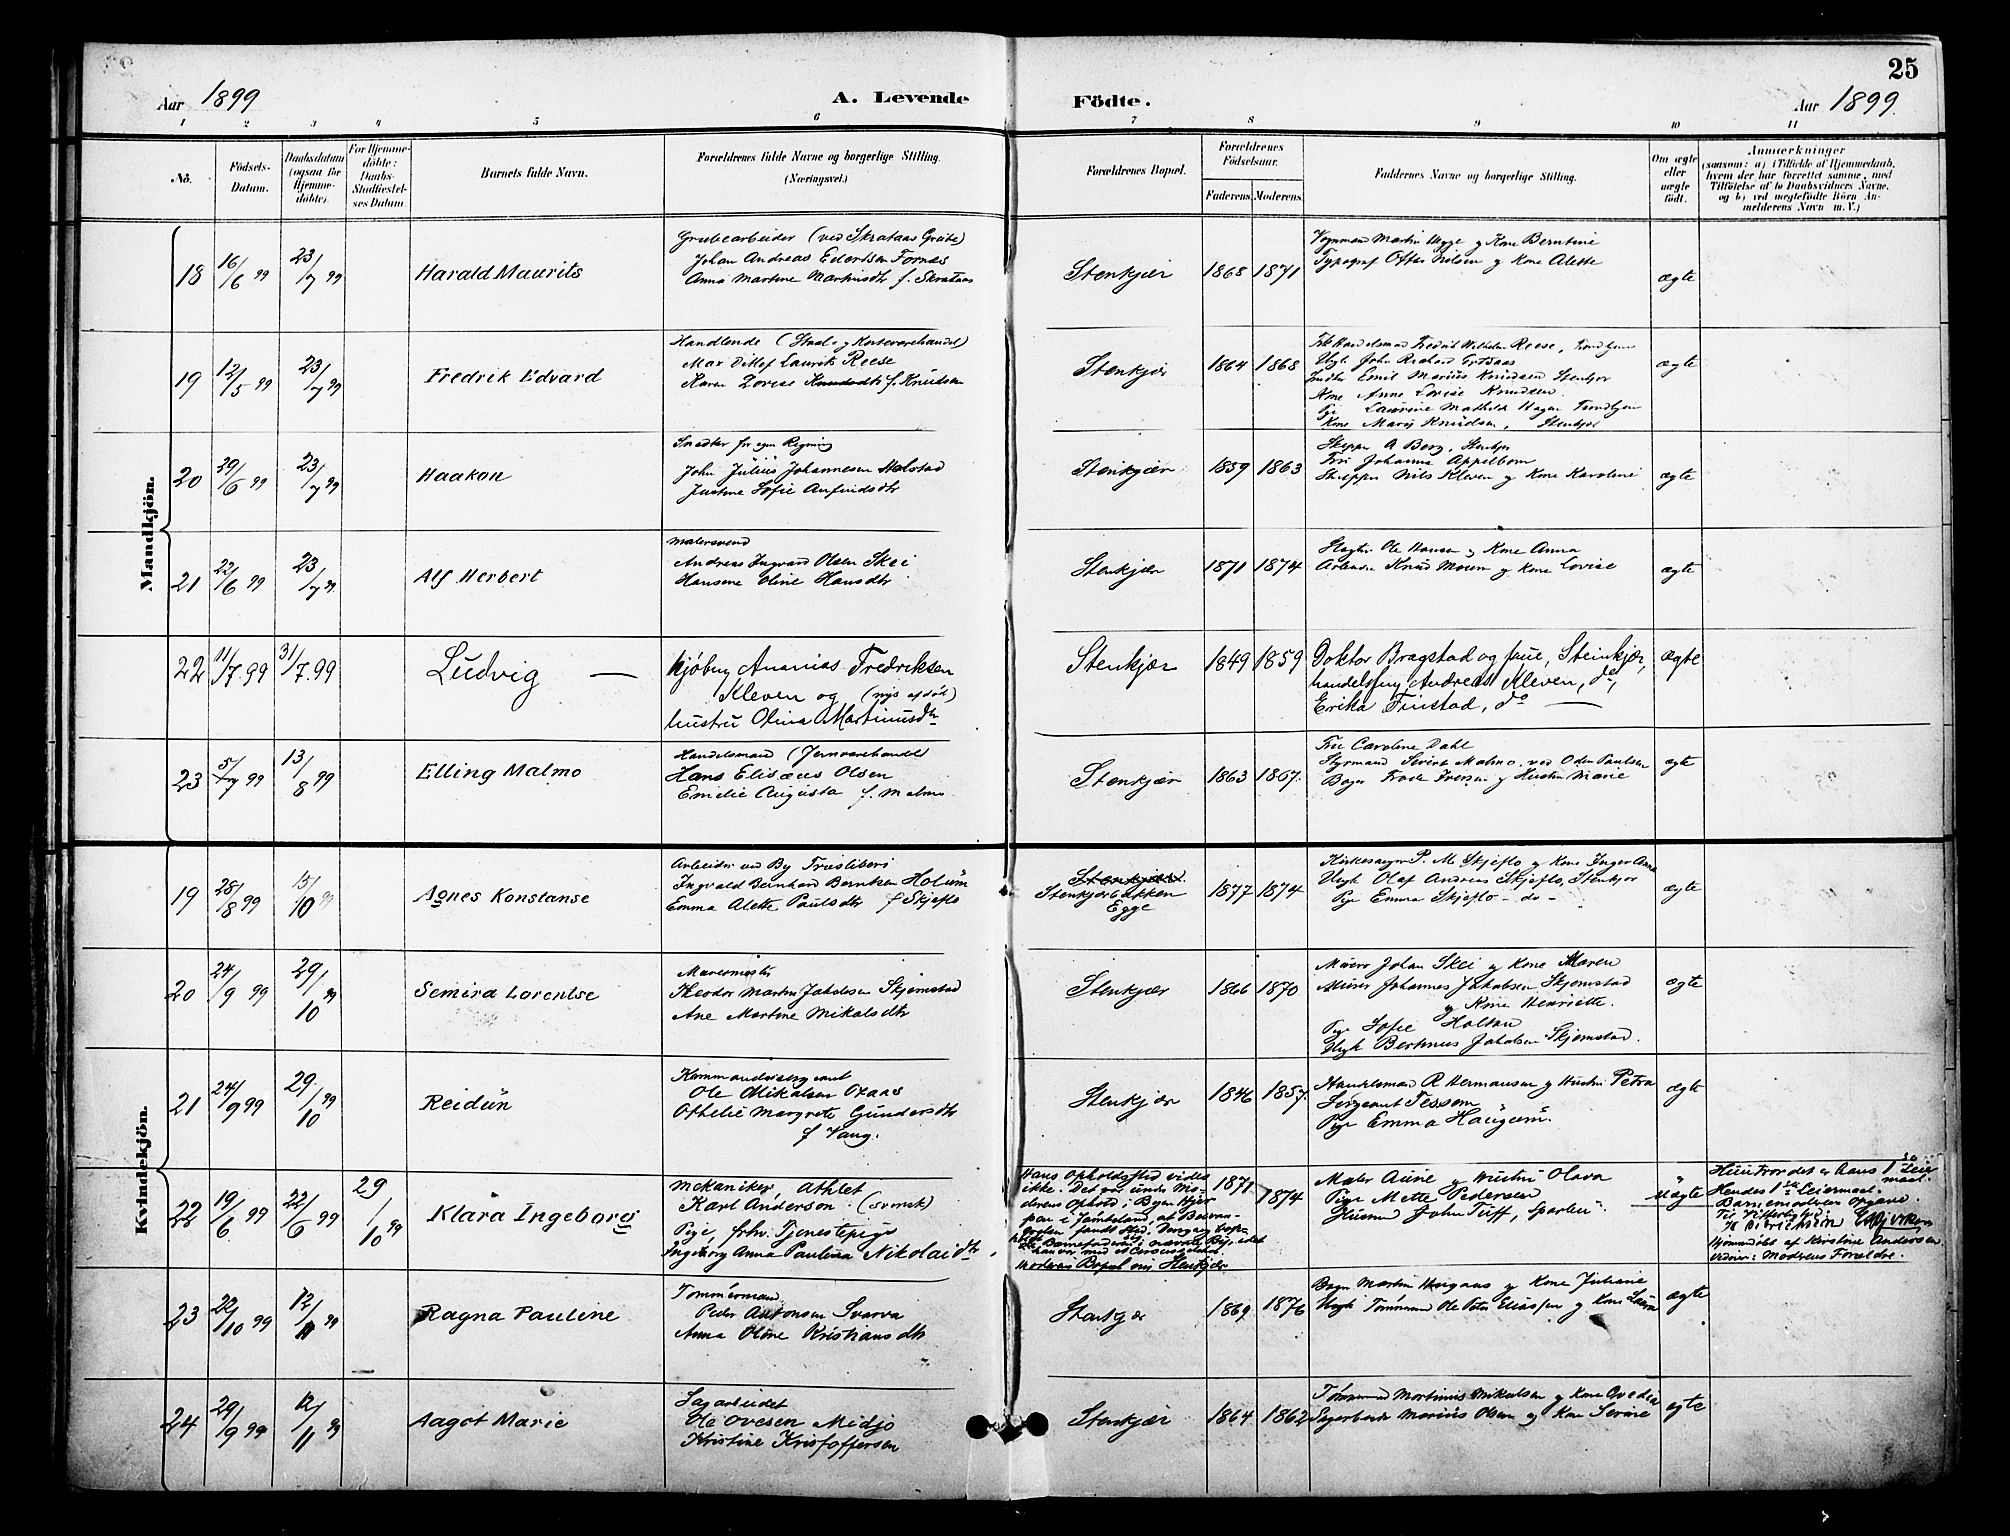 25
Aar 1899
A. Levende
Födte.
Aar 1899.
1 2 3 4 5 6 7 8 9 10 11
No.
Födsels-
Datum.
Daabsdatum
(ogsaa for
Hjemme-
döbte).
For Hjemme-
döbte:
Daabs-
Stadfæstel-
ses Datum.
Barnets fulde Navn.
Forældrenes fulde Navne og borgerlige Stilling.
(Næringsvei.)
Forældrenes Bopæl.
Forældrenes
Födselsaar.
Faderens. Moderens.
Faddernes Navne og borgerlige Stilling.
Om ægte
eller
uægte
födt.
Anmærkninger
(saasom: a) i Tilfælde af Hjemmedaab,
hvem der har forrettet samme, med
Tilföielse af to Daabsvidners Navne,
og b) ved uægtefödte Börn An-
melderens Navn m. V.)
Mandkjön.
18 16/6 99 23/7 99 Harald Maurits
Grubearbeider (ved Skrataas Grube)
Johan Andreas Edvardsen Fornæs
Anna Martine Martinusdtr f. Skrataas
Stenkjær 1868 1871
Vognmand Martin Hegge og Kone Berntine
Typograf Ofter Nilsen og Kone Alette
ægte
19 12/5 99 23/7 99 Fredrik Edvard
Handlende (Staal- og Kortevarehandel)
Max Ditlef Laurits Reese
Karen Lovise Knudsdtr f. Knudsen
Stenkjær 1864 1868
Fredrik Wilhelm Reese, Trondhjem
Ungk John Richard
Emil Marius Knudsen Stenkjær
Kone Anne Lovise Knudsen
Pige Laurine Mathilde Hagen Trondhjem
Kone Marij Knudsen, Stenkjær
ægte
20 29/6 99 23/7 99 Haakon
Snedker for egen Regning
John Julius Johannesen Halstad
Justine Sofie Arfindsdtr
Stenkjær 1859 1863
Skipper A Berg, Stenkjær
Frk Johanna Appelbom
Skipper Nils Kleven og Kone Karoline
ægte
21 22/6 99 23/7 99 Alf Herbert
Malersvend
Andreas Ingvard Olsen Skei
Hansine Oline Hansdtr
Stenkjær 1871 1874
Slagter Ole Hansen og Kone Anna
Arbeider Knud Moum og Kone Lovise
ægte
22 11/7.99 31/7.99 Ludvig —
Kjøbm Ananias Fredriksen
Kleven og (nys afdøk)
hustru Olina Martinusdtr
Stenkjær 1849 1859
Doktor Bragstad og frue, Steinkjær,
handelsm Andreas Kleven, do,
Erika Finstad, do —
ægte
23 5/7 99 13/8 99 Elling Malmo
Handelsmand (Jernvarehandel)
Hans Elisæus Olsen
Emelie Augusta f. Malmo
Stenkjær 1863 1867.
Fru Caroline Dahl
Styrmand Sivert Malmo, ved Oden Paulsen
Bager Frode Iversen og Hustru Marie
ægte
Kvindekjön.
19 28/8 99 15/10 99 Agnes Konstanse
Arbeider ved By Træsliberi
Ingvald Bernhard Berntsen Holum
Emma Alette Paulsdtr f Skjeflo
Stenkjær
Stenkjærbakken
Egge
1877 1874
Kirkesanger P. M Skjeflo og Kone Inger Anna
Ungk Olaf Andreas Skjeflo, Stenkjær
Pige Emma Skjeflo - do -
ægte
20 24/9 99 29/10 99 Semira Lorentse
Murermester
Theodor Martin Jakobsen Skjemstad
Ane Martine Mikalsdtr
Stenkjær 1866 1870
Murer Johan Skei og Kone Maren
Murer Johannes Jakobsen Skjemstad
og Kone Henriette.
Pige Sofie Holtan
Ungk Bertinus Jakobsen Skjemstad.
ægte
21 24/9 99 29/10 99 Reidun
Kommandersergeant
Ole Mikalsen Oxaas
Othelie Margrete Gundersdtr
f Vang.
Stenkjær 1846 1857.
Handelsmand R Hermansen og Hustru Petra
Sergeant Tessem
Pige Emma Haugum.
ægte
22 19/6 99 22/6 99 29/10 99 Klara Ingeborg
Mekaniker, Athlet
Karl Anderson (svensk)
Pige, frhv. Tjenestepige
Ingeborg Anna Paulina Nikolaidtr.
Hans Opholdssted vides
ikke. Det var under Mo-
derens Ophold i Byen
i Jämtland, at Barnet
Moderens Bopæl nu Stenkjær.
1871 1874
Maler Aune og Hustru Olava
Pige Mette Pedersen
Husmd John Tuff, Sparbu.
uægte
Huntror det er hans 1ste Leier
maal.
Hendes 1ste Leiermaal.
Barnemoderen opgave.
Hjemmedøbt af Kristine Andersen
Vidner: Modrens Forældre.
23 22/10 99 12/11 99 Ragna Pauline
Tømmermand
Peder Antonsen Svarva
Anna Oline Kristiansdtr
Stenkjær 1869 1876
Bager Martin Haugaas og Kone Juliane
Ungk Tømmermd Ole Peter Eliassen og Kone Laura
ægte
24 29/9 99 12/11 99 Aagot Marie
Sagarbeider
Ole Ovesen Midjo
Kristine Kristoffersen
Stenkjær 1864 1862
Tømmermd Martinus Mikalsen og Kone Ovedia
Sagarbeider Marius Olsen og Kone Serine
ægte